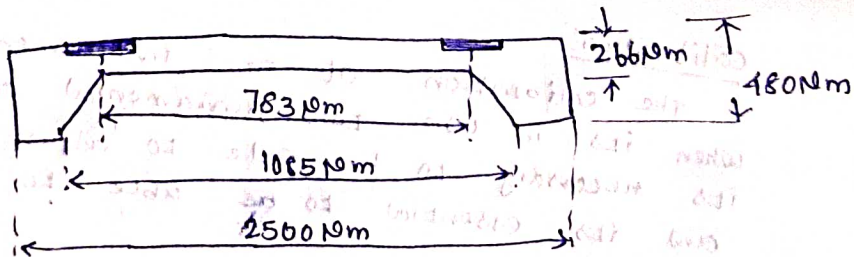 266Nm
480Nm
783Nm
1085Nm
2500Nm